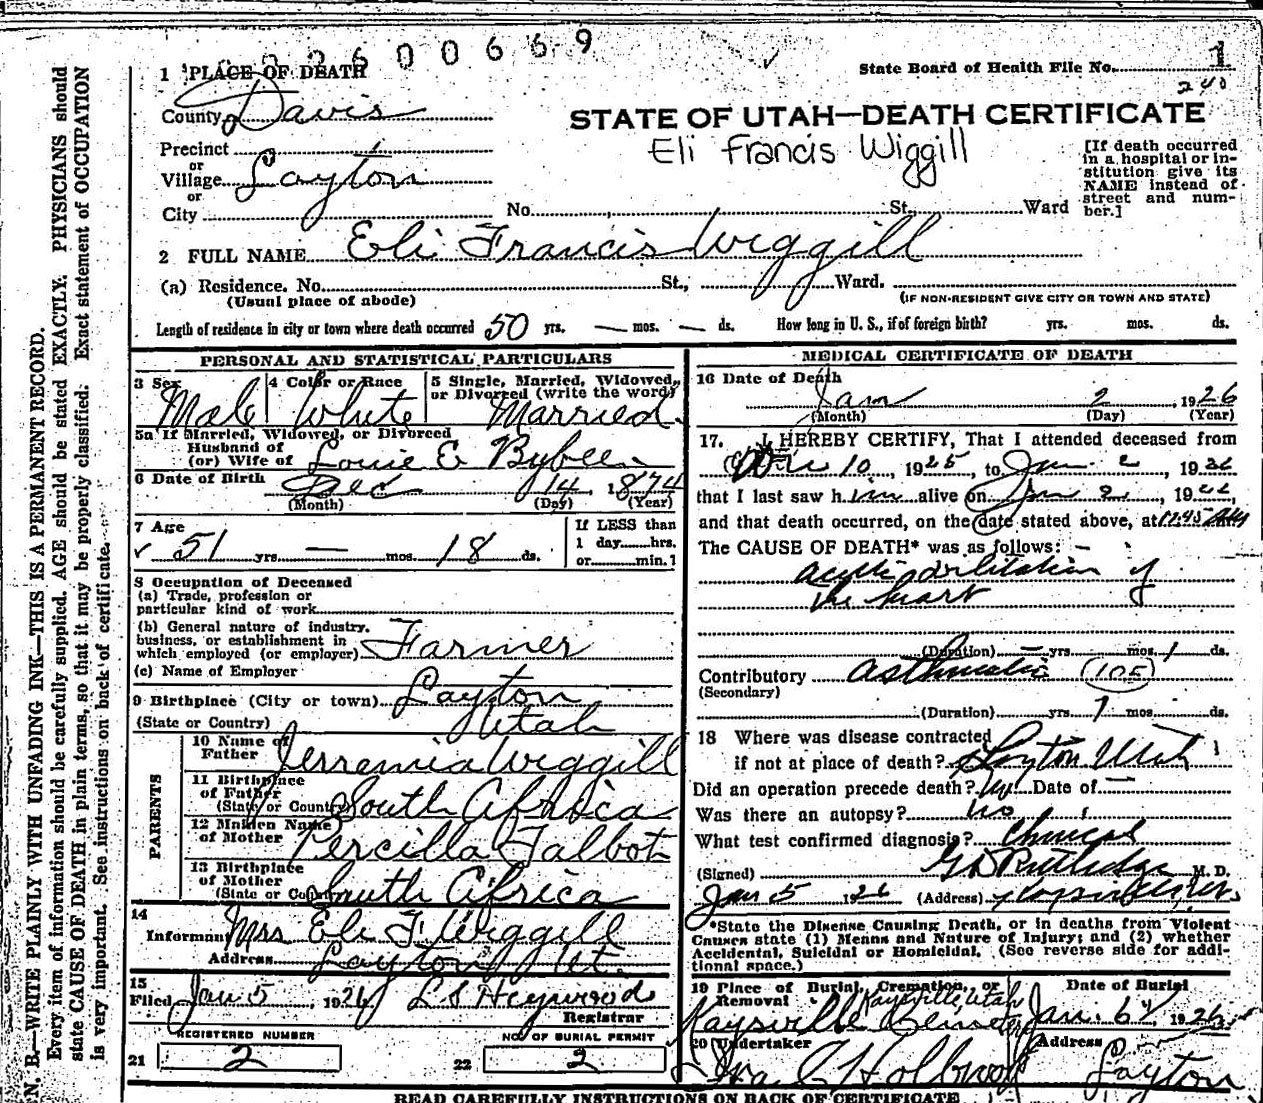 2600669
1 PLACE OF DEATH
State Board of Health File No. 1
240
County Davis
STATE OF UTAH—DEATH CERTIFICATE
Eli Francis Wiggill
Precinct
or
Village Layton
or
City
No. St. Ward
[If death occurred
in a hospital or in-
stitution give its
NAME instead of
street and num-
ber.]
2 FULL NAME Eli Francis Wiggill
(a) Residence. No. St., Ward.
(Usual place of abode)
(IF NON-RESIDENT GIVE CITY OR TOWN AND STATE)
Length of residence in city or town where death occurred 50 yrs. — mos. — ds. How long in U. S., if of foreign birth? yrs. mos. ds.
PERSONAL AND STATISTICAL PARTICULARS
3 Sex
Male
4 Color or Race
White
5 Single, Married, Widowed,
or Divorced (write the word)
Married
5a If Married, Widowed, or Divorced
Husband of
(or) Wife of Louie E Bybee
6 Date of Birth Dec 14, 1874
(Month) (Day) (Year)
7 Age
51 yrs. — mos. 18 ds.
If LESS than
1 day......hrs.
or......min.]
8 Occupation of Deceased
(a) Trade, profession or
particular kind of work
(b) General nature of industry,
business, or establishment in
which employed (or employer) Farmer
(c) Name of Employer
9 Birthplace (City or town) Layton
(State or Country) Utah
PARENTS
10 Name of
Father Jerremia Wiggill
11 Birthplace
of Father
(State or Country) South Africa
12 Maiden Name
of Mother Percilla Talbot
13 Birthplace
of Mother
(State or Country) South Africa
14
Informant Mrs Eli F Wiggill
Address Layton Ut.
15
Filed Jan 5, 1926 L S Heywood
Registrar
REGISTERED NUMBER
21 2
NO. OF BURIAL PERMIT
22 2
MEDICAL CERTIFICATE OF DEATH
16 Date of Death
Jan 2, 1926
(Month) (Day) (Year)
17. I HEREBY CERTIFY, That I attended deceased from
10, 1925, to Jan 2, 1926
that I last saw him alive on Jan 2, 1926,
and that death occurred, on the date stated above, at 11:45
The CAUSE OF DEATH* was as follows:
acute dilitation of
the heart
(Duration) — yrs. mos. 1 ds.
Contributory asthmatic 105
(Secondary)
(Duration) yrs. 1 mos. ds.
18 Where was disease contracted
if not at place of death? Layton Utah
Did an operation precede death? no Date of —
Was there an autopsy? no
What test confirmed diagnosis? Clinical
(Signed) G D Rutledge M. D.
Jan 5 1926 (Address)
*State the Disease Causing Death, or in deaths from Violent
Causes state (1) Means and Nature of Injury; and (2) whether
Accidental, Suicidal or Homicidal. (See reverse side for addi-
tional space.)
19 Place of Burial, Cremation, or
Removal Kaysville, Utah
Kaysville Cemetery
Date of Burial
Jan. 6, 1926
20 Undertaker
Holbrook
Address
Layton
READ CAREFULLY INSTRUCTIONS ON BACK OF CERTIFICATE
N. B.—WRITE PLAINLY WITH UNFADING INK—THIS IS A PERMANENT RECORD.
Every item of information should be carefully supplied. AGE should be stated EXACTLY. PHYSICIANS should
state CAUSE OF DEATH in plain terms, so that it may be properly classified. Exact statement of OCCUPATION
is very important. See instructions on back of certificate.